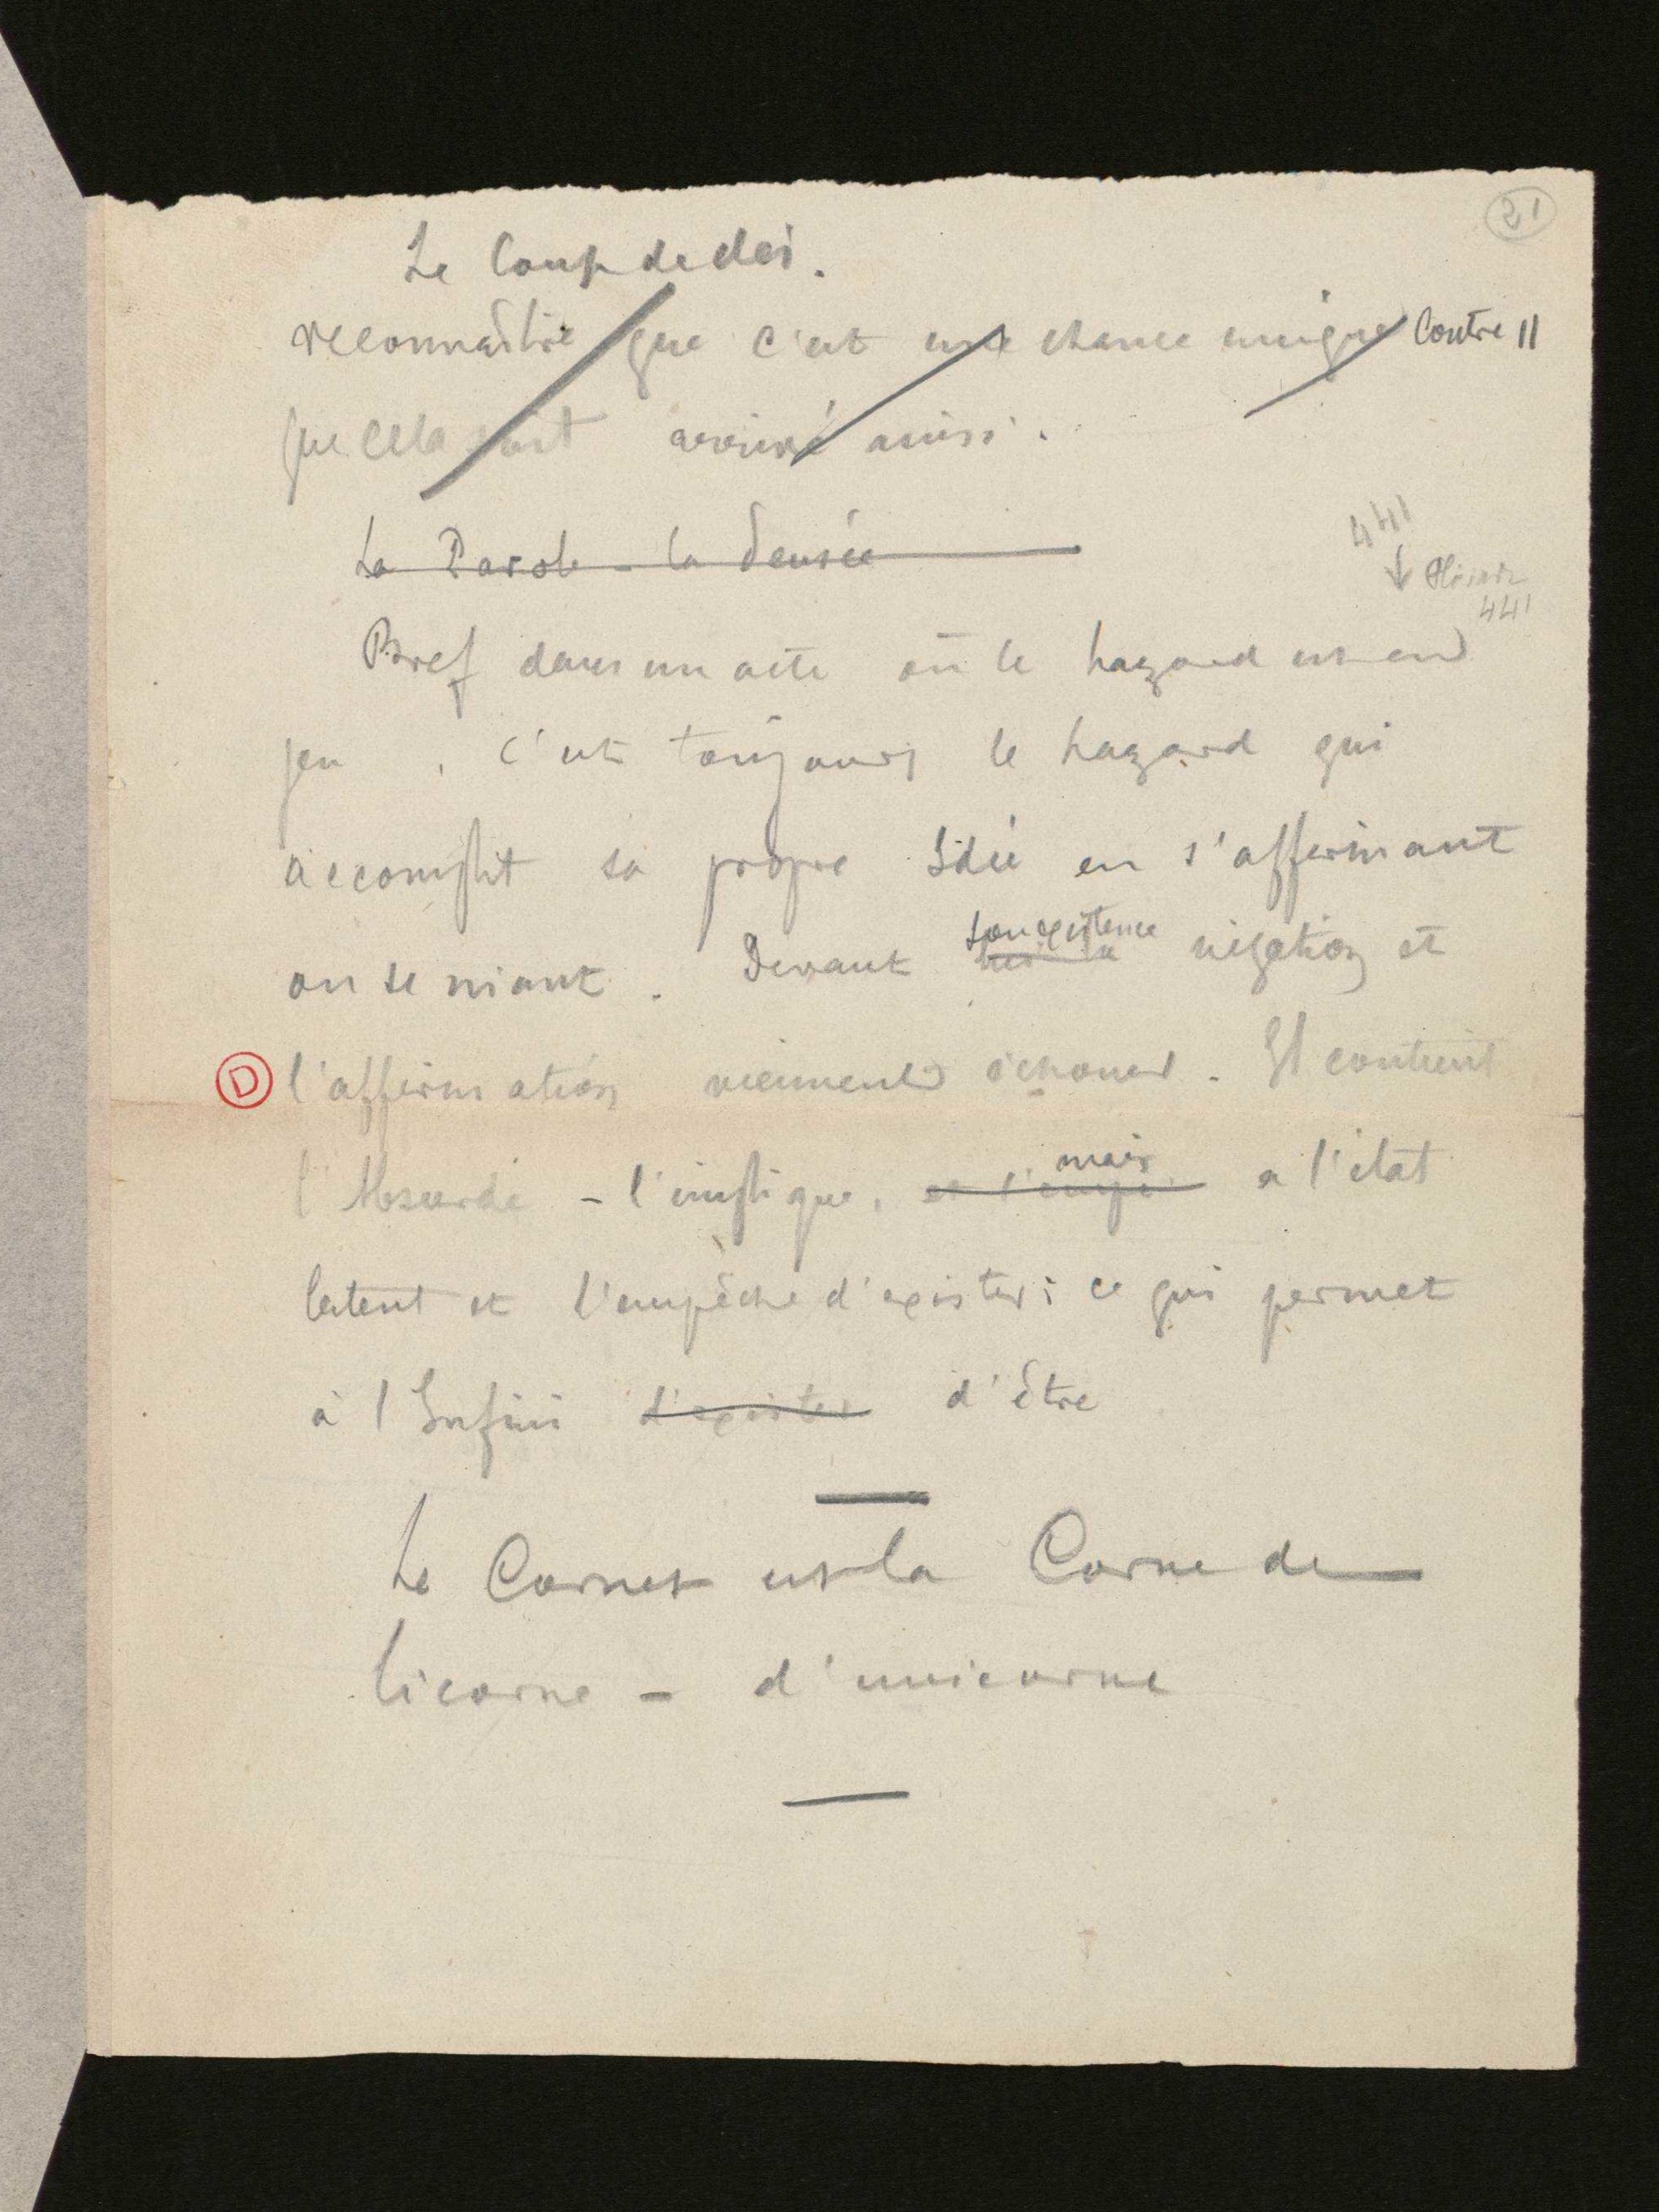 21
Le Coup de dés.
reconnaître que c'est une chance unique contre 11
que cela soit arrivé ainsi.
441
La Parole - la Pensée
↓ Pléiade
441
Bref dans un acte où le hazard est en
jeu, c'est toujours le hazard qui
accomplit sa propre Idée en s'affirmant
ou se niant. Devant son existence négation et
D l'affirmation viennent échouer. Il contient
l'Absurde - l'implique, mais a l'état
latent et l'empêche d'exister: ce qui permet
à l'Infini d'exister d'être
Le Cornet est la Corne de
licorne - d'unicorne